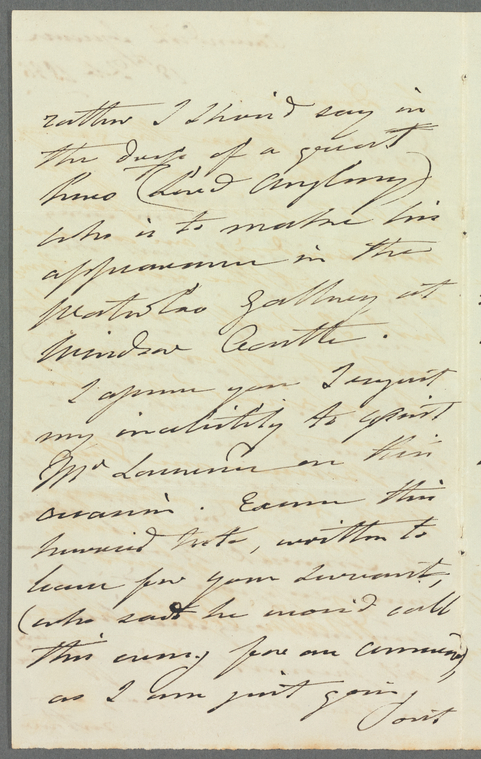 rather I should say in
the dress of a great
hero (Lord Anglesey)
who is to make his
appearance in the
Waterloo Gallery at
Windsor Castle.
I assure you I regret
my inability to assist
Mr Lawrence on this
occasion. Excuse this
hurried note, written to
leave for your servant,
(who said he would call
this eveng for an answer)
as I am just going
out